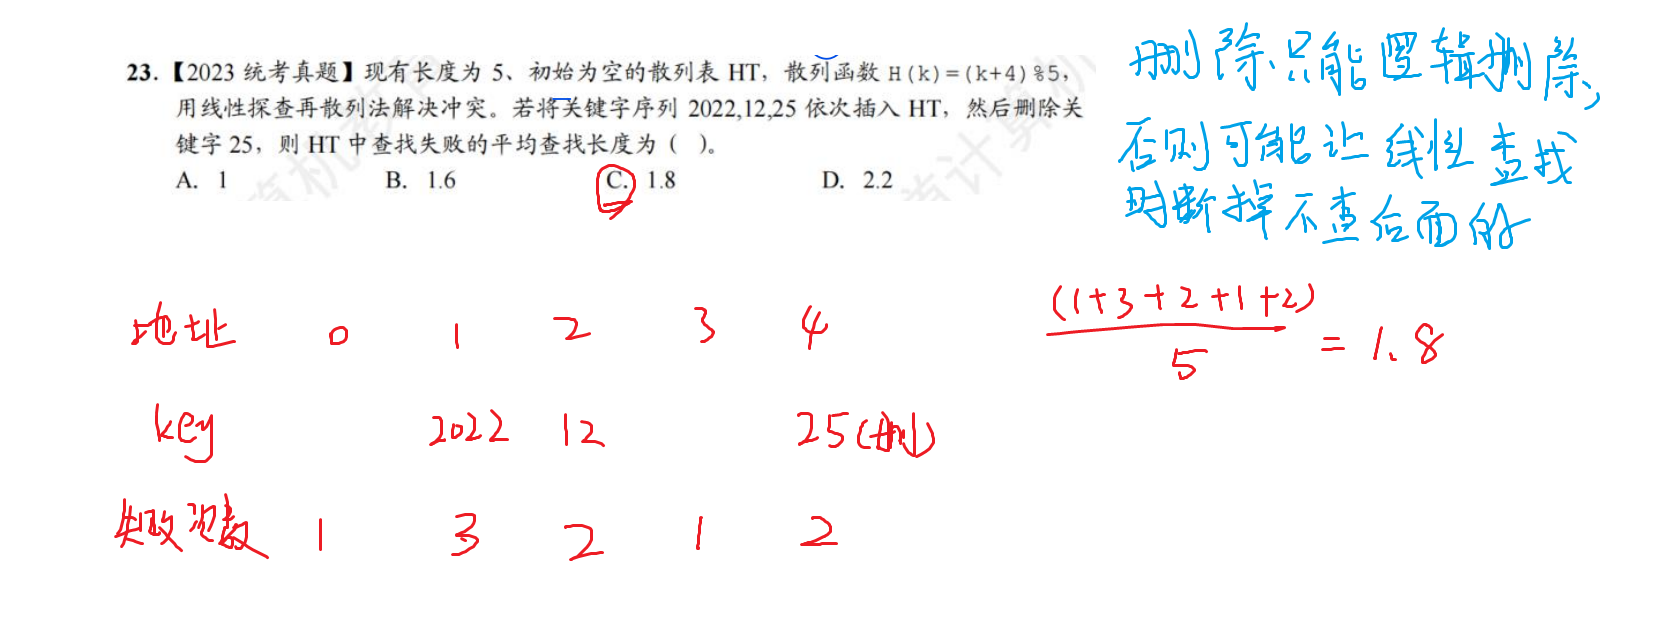 23.【2023 统考真题】现有长度为 5、初始为空的散列表 HT，散列函数 H(k)=(k+4)%5，
用线性探查再散列法解决冲突。若将关键字序列 2022,12,25 依次插入 HT，然后删除关
键字 25，则 HT 中查找失败的平均查找长度为（ ）。
A. 1 B. 1.6 C. 1.8 D. 2.2
删除只能逻辑删除，
否则可能让线性查找
时断掉不查后面的
地址 0 1 2 3 4
key 2022 12 25(删)
失败次数 1 3 2 1 2
(1+3+2+1+2)
5
= 1.8